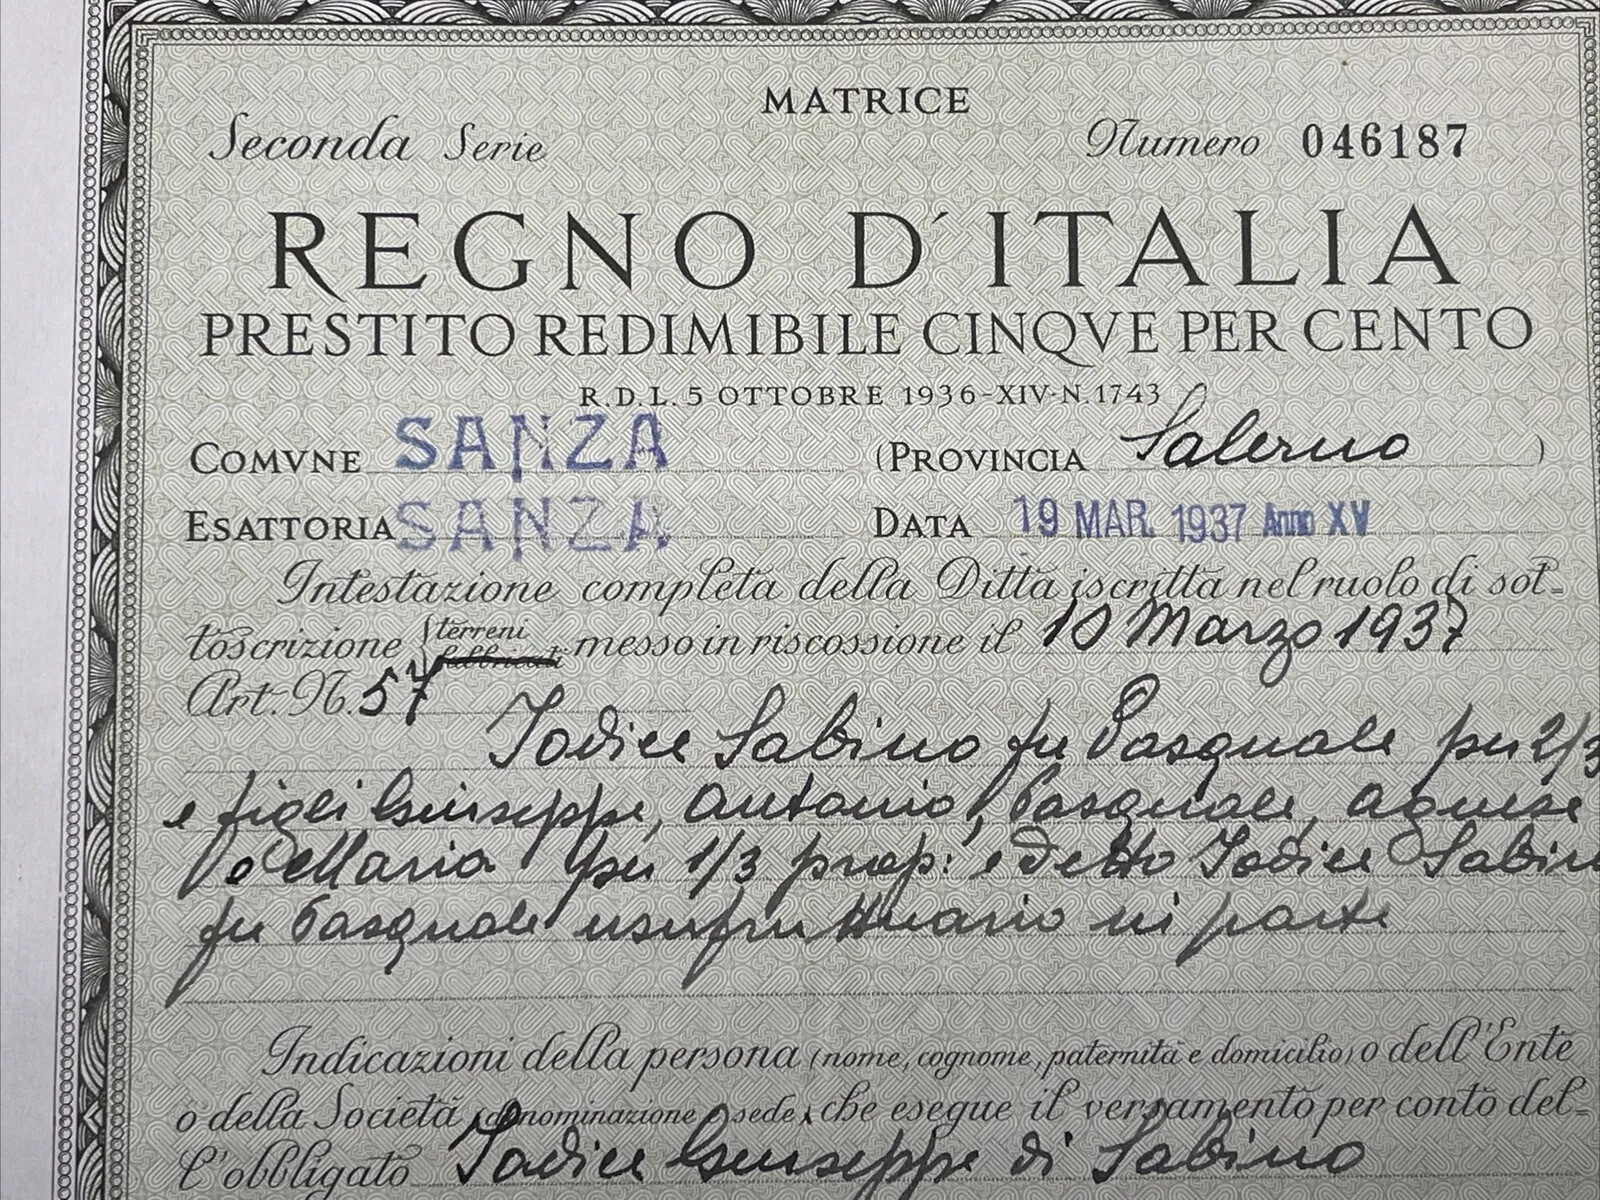 MATRICE
Seconda Serie
Numero 046187
REGNO D'ITALIA
PRESTITO REDIMIBILE CINQVE PER CENTO
R.D.L. 5 OTTOBRE 1936-XIV-N.1743
COMVNE SANZA (PROVINCIA Salerno )
ESATTORIA SANZA DATA 19 MAR. 1937 Anno XV
Intestazione completa della Ditta iscritta nel ruolo di sot=
toscrizione { terreni fabbricati messo in riscossione il 10 Marzo 1937
Art. N. 57
Iodice Sabino fu Pasquale per 2/3
e figli Giuseppe, Antonio, Pasquale, Agnese
Maria per 1/3 prop: e detto Iodice Sabino
fu Pasquale usufruttuario in parte
Indicazioni della persona (nome, cognome, paternità e domicilio) o dell'Ente
o della Società (denominazione e sede) che esegue il versamento per conto del=
l'obbligato Iodice Giuseppe di Sabino